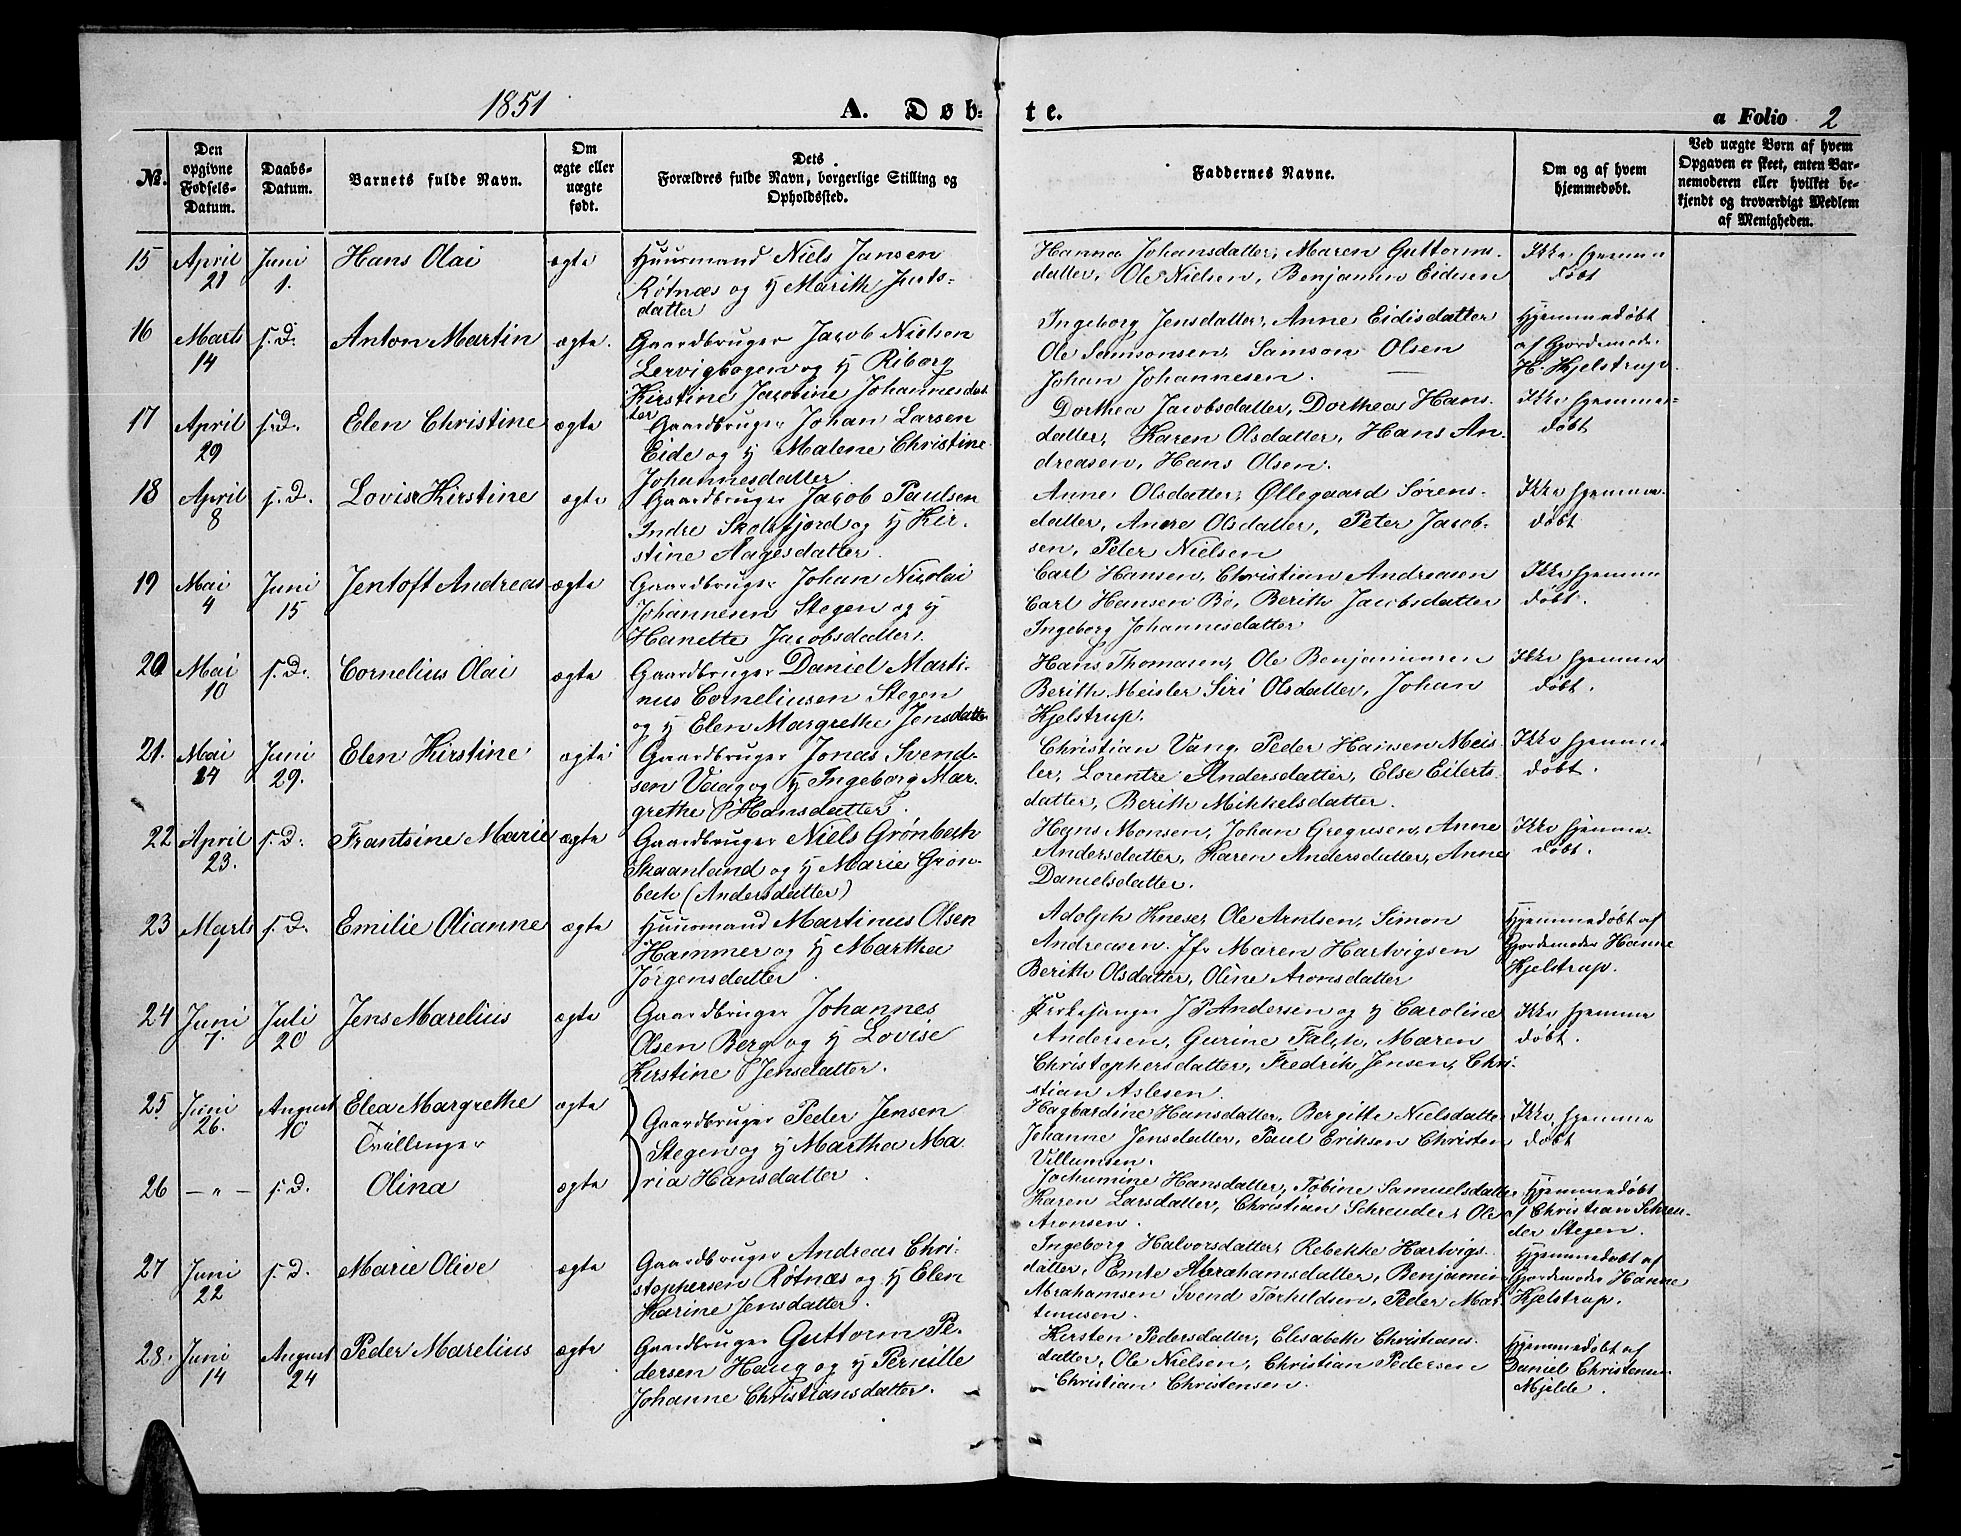 1851
A. Døb=
te.
a Folio 2
№.
Den opgivne Fødsels-Datum.
Daabs-Datum.
Barnets fulde Navn.
Om ægte eller uægte født.
Dets Forældres fulde Navn, borgerlige Stilling og Opholdssted.
Faddernes Navne.
Om og af hvem hjemmedøbt.
Ved uægte Børn af hvem Opgaven er skeet, enten Barnemoderen eller hvilket bekjendt og troværdigt Medlem af Menigheden.
15 April 21 Juni 1. Hans Olai ægte Huusmand Niels Jansen
Røtnæs og H Marith Justs-
datter
Hanna Johansdatter, Maren Guttorms-
datter, Ole Nielsen, Benjamin Eidesen
Ikke hjemme
døbt
16 Marts 14 s. D. Anton Martin ægte. Gaardbruger Jacob Nielsen
Lervigbogen og H Riborg
Kirstine Jacobine Johannesdat-
ter
Ingeborg Jensdatter, Anne Eidisdatter
Ole Samsonsen, Samson Olsen
Johan Johannesen.
Hjemmedøbt
af Gjordemoder
H. Hjelstrup.
17 April 29 s. D. Elen Christine ægte Gaardbruger Johan Larsen
Eide og H Malene Christine
Johannesdatter
Dorthea Jacobsdatter, Dorthea Hans-
datter, Karen Olsdatter, Hans An-
dreasen, Hans Olsen.
Ikke hjemme-
døbt
18 April 8 s. D. Lovise Kirstine ægte Gaardbruger Jacob Paulsen
Indre Skolsfjord og H Kir-
stine Aagesdatter.
Anne Olsdatter, Øllegaard Sørens-
datter, Anne Olsdatter, Peter Jacob-
sen, Peter Nielsen
Ikke hjemme-
døbt
19 Mai 4 Juni 15 Jentoft Andreas ægte Gaardbruger Johan Nicolai
Johannesen Stegen og H
Hanette Jacobsdatter.
Carl Hansen, Christian Andreasen
Carl Hansen Bø, Berith Jacobsdatter
Ingeborg Johannesdatter
Ikke hjemme
døbt.
20 Mai 10 s. D. Cornelius Olai ægte Gaardbruger Daniel Marti-
nus Corneliusen Stegen
og H Elen Margrethe Jensdatter
Hans Thomasen, Ole Benjaminsen
Berith Meisler Siri Olsdatter, Johan
Hjelstrup.
Ikke hjemme
døbt.
21. Mai 14 Juni 29. Elen Kirstine ægte Gaardbruger Jonas Svend-
sen Vaag og H Ingeborg Mar-
grethe Hansdatter.
Christian Vang, Peder Hansen Meis-
ler, Lorentze Andersdatter, Else Eilerts-
datter, Berith Mikkelsdatter.
Ikke hjemme
døbt.
22 April 23. s. D. Frantsine Marie ægte Gaardbruger Niels Grønbech
Skaanland og H Marie Grøn-
bech (Andersdatter)
Hans Monsen, Johan Gregusen, Anne
Andersdatter, Karen Andersdatter, Anne
Danielsdatter.
Ikke hjemme-
døbt.
23 Marts 7 s. D. Emilie Olianne ægte Huusmand Martinus Olsen
Hammer og H Martha
Jørgensdatter.
Adolph Knese, Ole Arntsen, Simon
Andreasen. Jfr Maren Hartvigsen
Berith Olsdatter, Oline Aronsdatter
Hjemmedøbt af
Gjordemoder Hanne
Hjelstrup.
24 Juni 7. Juli 20 Jens Marelius ægte Gaardbruger Johannes
Olsen Berg og H Lovise
Kirstine Jensdatter.
Kirkesanger J P Andersen og H Caroline
Andersen, Gurine Falch, Maren
Christophersdatter, Fredrik Jensen, Chri-
stian Aslesen.
Ikke hjemme
døbt.
25 Juni 26. August 10 Elea Margrethe ægte Gaardbruger Peder Jensen
Trillinger
Stegen og H Martha Ma
ria Hansdatter.
Hagbardine Hansdatter, Bergitte Nielsdatter
Johanne Jensdatter, Paul Eriksen Christen
Villumsen.
Ikke hjemme
døbt
26 —"— s. D. Olina ægte
Jochumine Hansdatter, Tobine Samuelsdatter
Karen Larsdatter, Christian Schreuder, Ole
Aronsen.
Hjemmedøbt
af Christian Schreu-
der Stegen.
27 Juni 22 s. D. Marie Olive ægte Gaardbruger Andreas Chri-
stophersen Røtnæs og H Elen
Karine Jensdatter.
Ingeborg Halvorsdatter, Rebekke Hartvigs-
datter, Emte Abrahamsdatter, Benjamin
Abrahamsen Svend Torkildsen, Peder Mar-
tinusen.
Hjemmedøbt af
Gjordemoder Hanne
Hjelstrup.
28. Juni 14 August 24 Peder Marelius ægte Gaardbruger Guttorm Pe-
dersen Haug og H Pernille
Johanne Christiansdatter.
Kirsten Pedersdatter, Elisabeth Christians-
datter, Ole Nielsen, Christian Pedersen
Christian Christensen.
Hjemmedøbt af
Daniel Christensen
Mjelde.